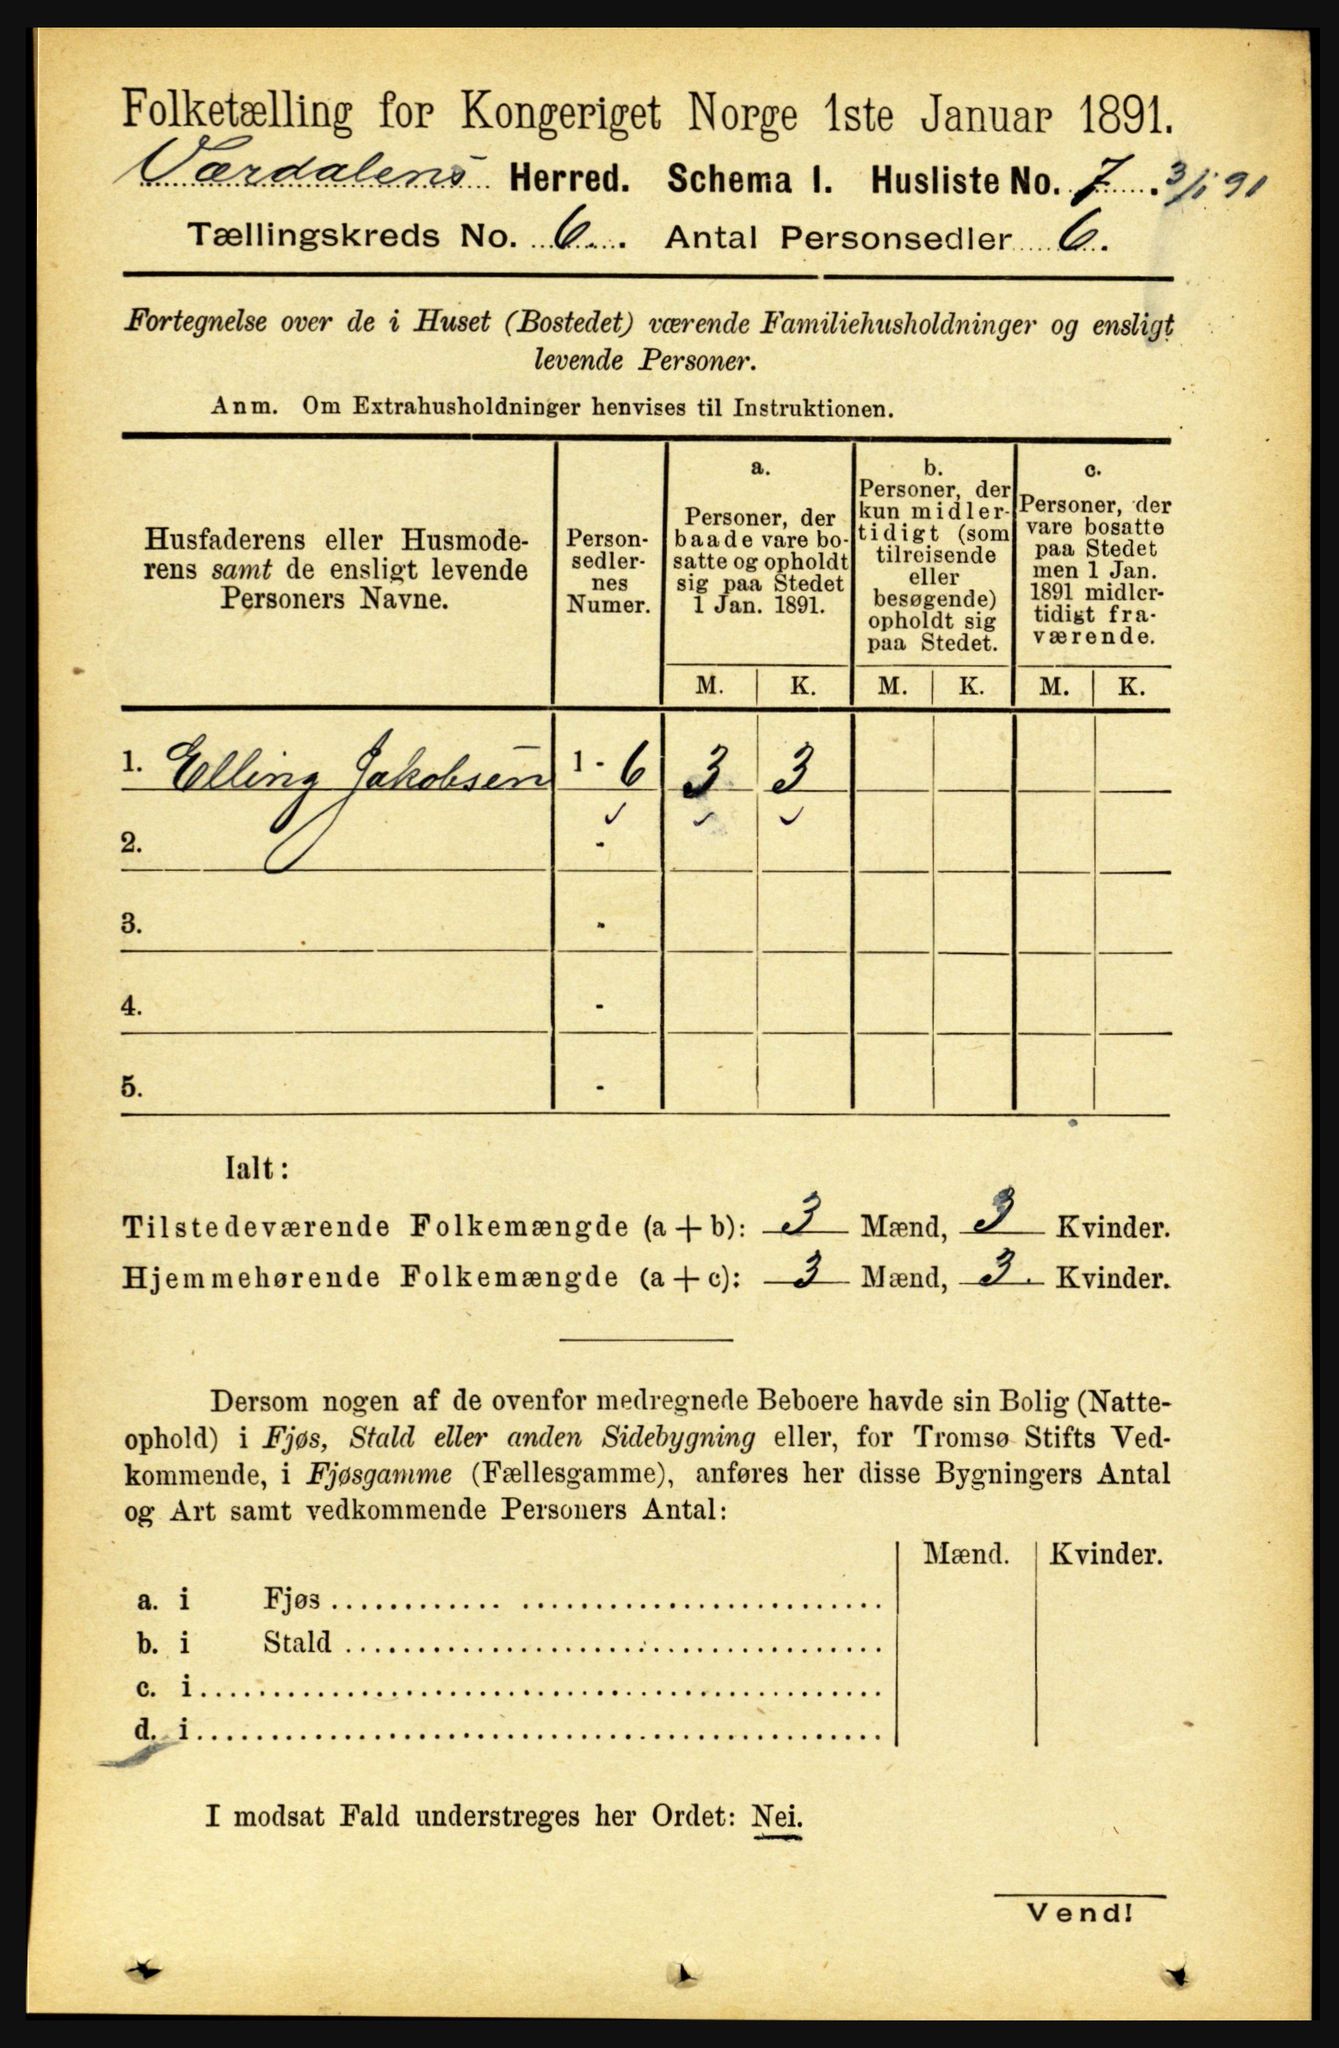 Folketælling for Kongeriget Norge 1ste Januar 1891.
Værdalens Herred. Schema I. Husliste No. 7. 3/1 91
Tællingskreds No. 6. Antal Personsedler 6.
Fortegnelse over de i Huset (Bostedet) værende Familiehusholdninger og ensligt
levende Personer.
Anm. Om Extrahusholdninger henvises til Instruktionen.
Husfaderens eller Husmode-
rens samt de ensligt levende
Personers Navne.
Person-
sedler-
nes
Numer.
a.
Personer, der
baade vare bo-
satte og opholdt
sig paa Stedet
1 Jan. 1891.
b.
Personer, der
kun midler-
tidigt (som
tilreisende
eller
besøgende)
opholdt sig
paa Stedet.
c.
Personer, der
vare bosatte
paa Stedet
men 1 Jan.
1891 midler-
tidigt fra-
værende.
M. K. M. K. M. K.
1. Elling Jakobsen 1 - 6 3 3
2. -
3. -
4. -
5. -
Ialt:
Tilstedeværende Folkemængde (a + b): 3 Mænd, 3 Kvinder.
Hjemmehørende Folkemængde (a + c): 3 Mænd, 3. Kvinder.
Dersom nogen af de ovenfor medregnede Beboere havde sin Bolig (Natte-
ophold) i Fjøs, Stald eller anden Sidebygning eller, for Tromsø Stifts Ved-
kommende, i Fjøsgamme (Fællesgamme), anføres her disse Bygningers Antal
og Art samt vedkommende Personers Antal:
Mænd. Kvinder.
a. i Fjøs
b. i Stald
c. i
d. i
I modsat Fald understreges her Ordet: Nei.
Vend!